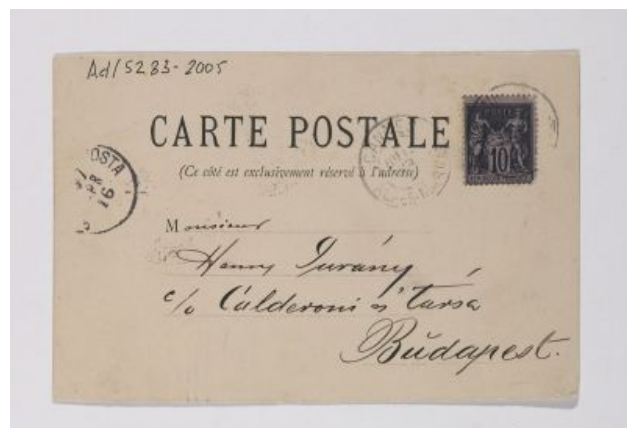 Ad/5283-2005
CARTE POSTALE
(Ce côté est exclusivement réservé à l'adresse)
10
OSTA
16
Monsieur
Henry
c/o Calderoni és Társa
Budapest.